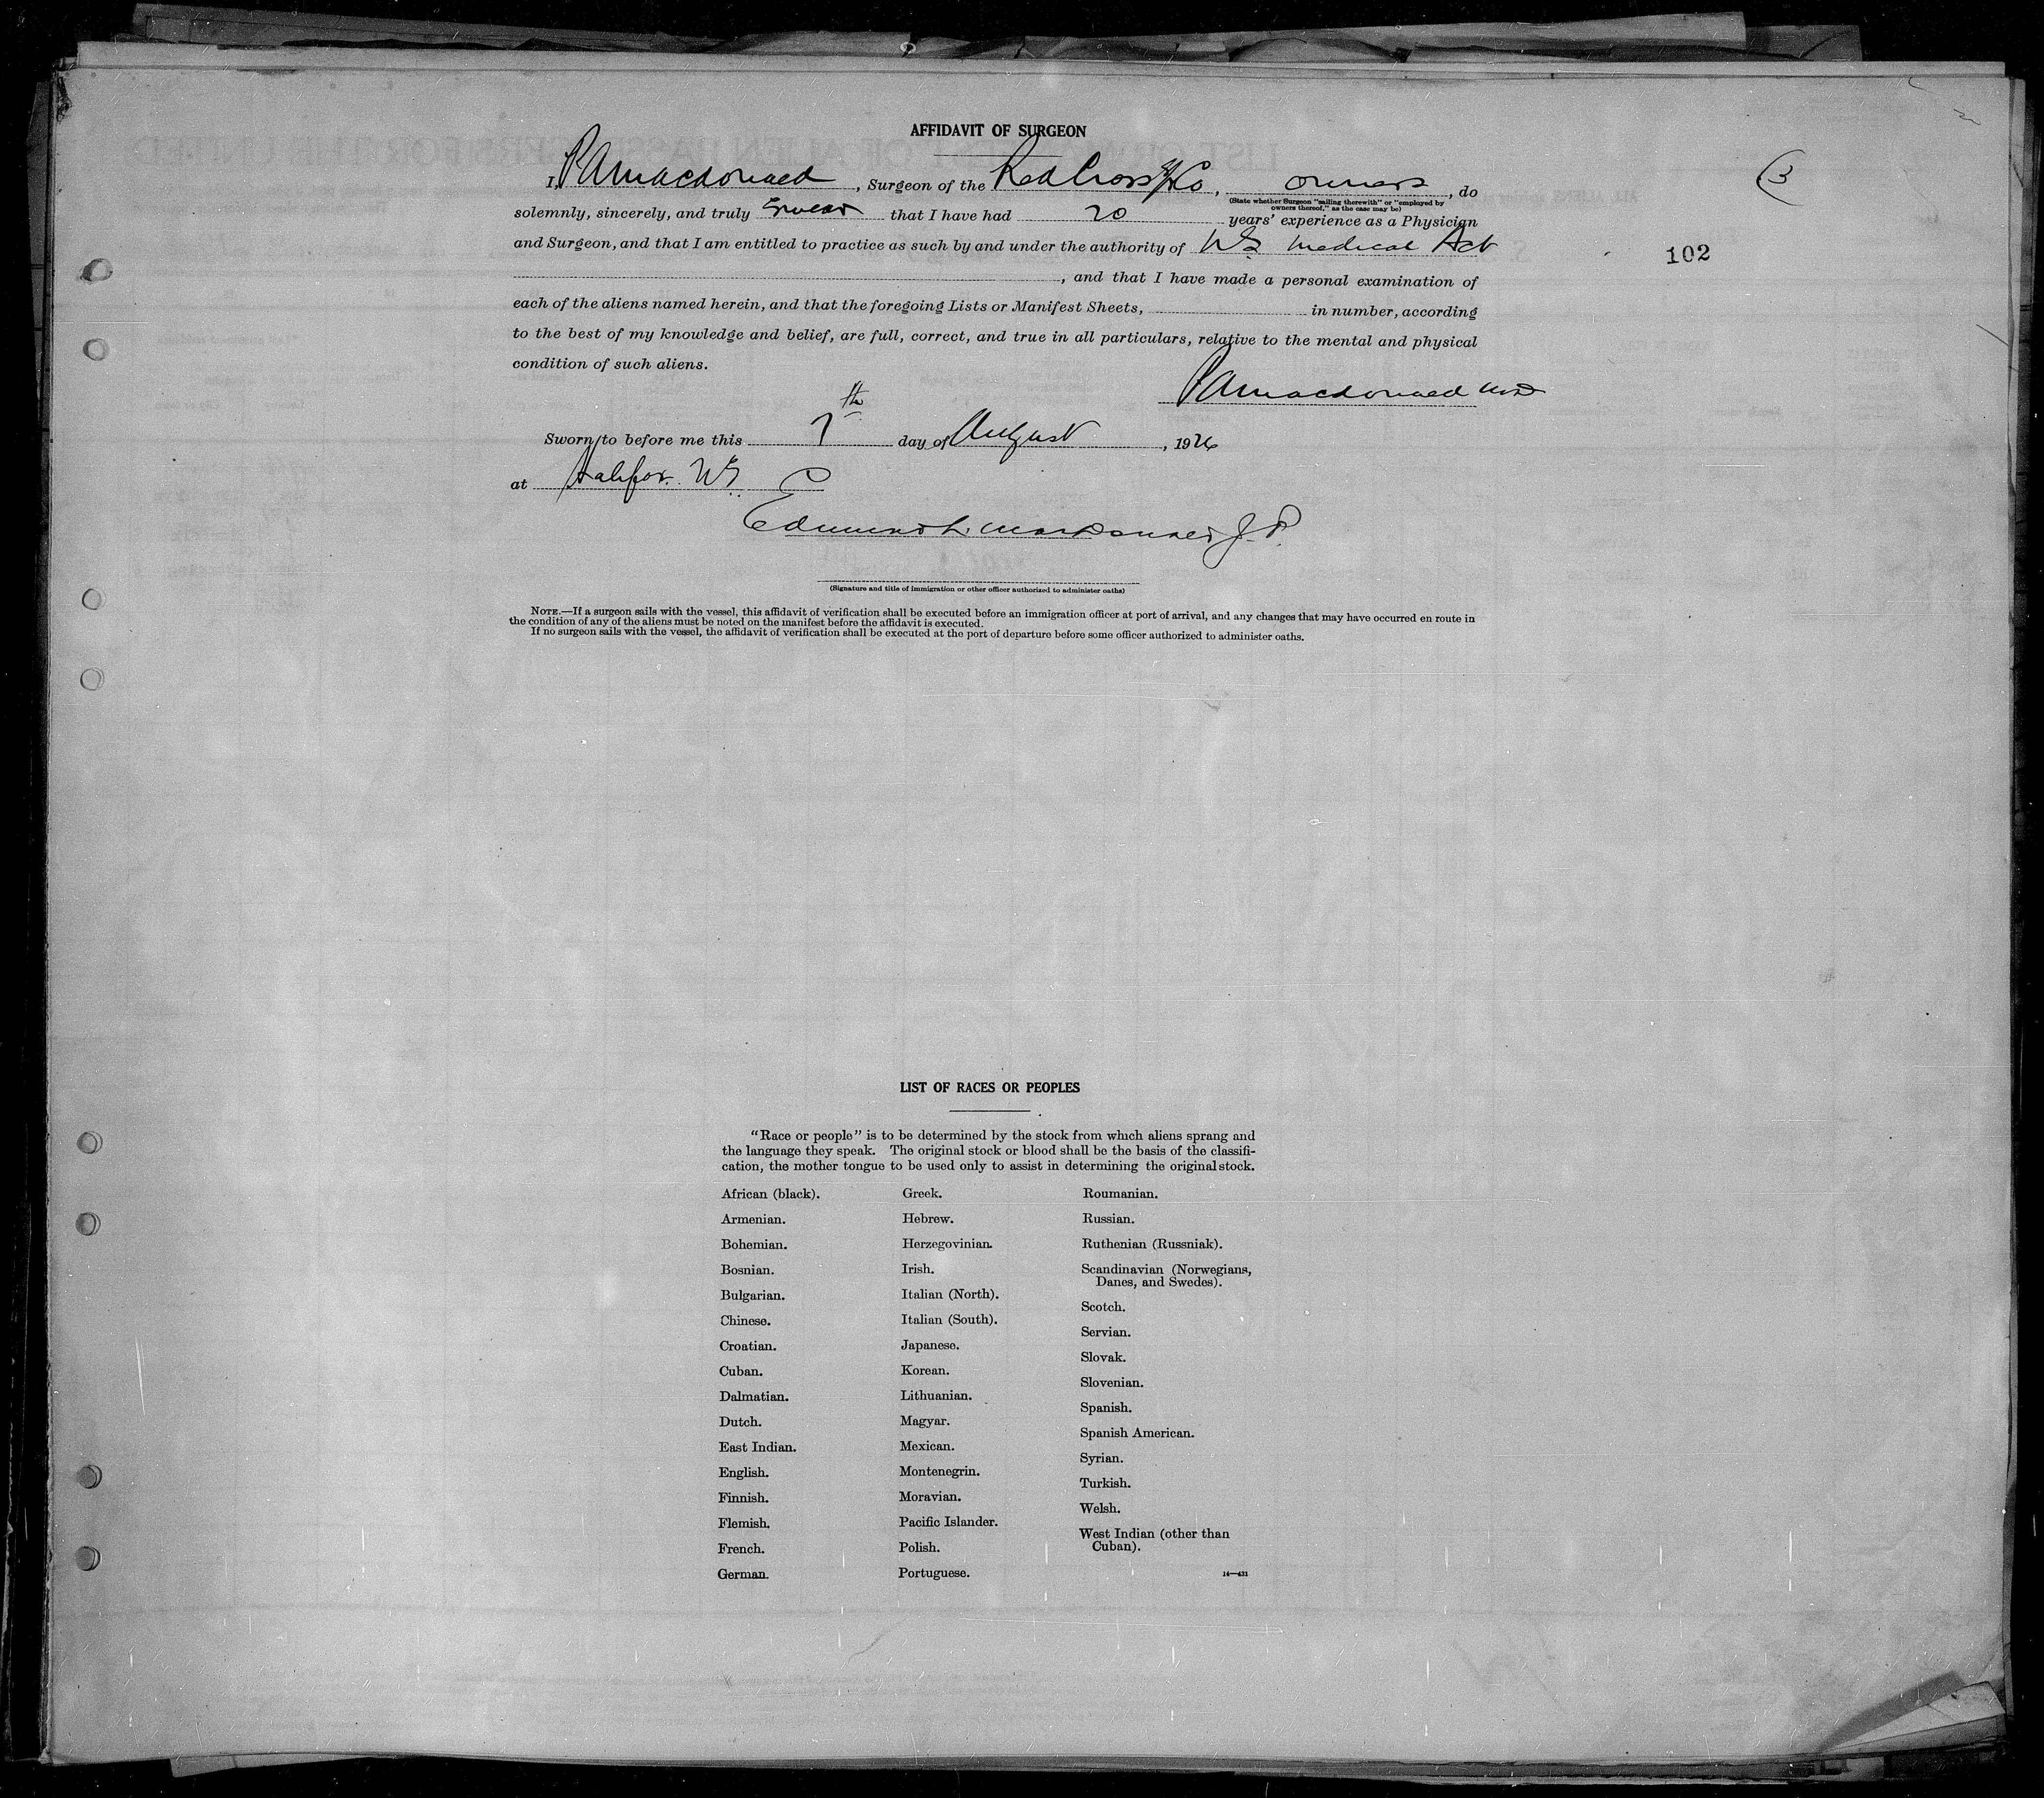 AFFIDAVIT OF SURGEON
I, P A Macdonald, Surgeon of the Red Cross S/S Co, owners, do
(State whether Surgeon "sailing therewith" or "employed by
owners thereof," as the case may be)
solemnly, sincerely, and truly swear that I have had 20 years' experience as a Physician
and Surgeon, and that I am entitled to practice as such by and under the authority of NS Medical Act
, and that I have made a personal examination of
each of the aliens named herein, and that the foregoing Lists or Manifest Sheets, in number, according
to the best of my knowledge and belief, are full, correct, and true in all particulars, relative to the mental and physical
condition of such aliens.
P A Macdonald MD
Sworn to before me this 7th day of August, 1926
at Halifax. NS
Edmund L. MacDonald J. P.
(Signature and title of immigration or other officer authorized to administer oaths)
NOTE.—If a surgeon sails with the vessel, this affidavit of verification shall be executed before an immigration officer at port of arrival, and any changes that may have occurred en route in
the condition of any of the aliens must be noted on the manifest before the affidavit is executed.
If no surgeon sails with the vessel, the affidavit of verification shall be executed at the port of departure before some officer authorized to administer oaths.
3
102
LIST OF RACES OR PEOPLES
"Race or people" is to be determined by the stock from which aliens sprang and
the language they speak. The original stock or blood shall be the basis of the classifi-
cation, the mother tongue to be used only to assist in determining the original stock.
African (black).
Armenian.
Bohemian.
Bosnian.
Bulgarian.
Chinese.
Croatian.
Cuban.
Dalmatian.
Dutch.
East Indian.
English.
Finnish.
Flemish.
French.
German.
Greek.
Hebrew.
Herzegovinian.
Irish.
Italian (North).
Italian (South).
Japanese.
Korean.
Lithuanian.
Magyar.
Mexican.
Montenegrin.
Moravian.
Pacific Islander.
Polish.
Portuguese.
Roumanian.
Russian.
Ruthenian (Russniak).
Scandinavian (Norwegians,
Danes, and Swedes).
Scotch.
Servian.
Slovak.
Slovenian.
Spanish.
Spanish American.
Syrian.
Turkish.
Welsh.
West Indian (other than
Cuban).
14—431